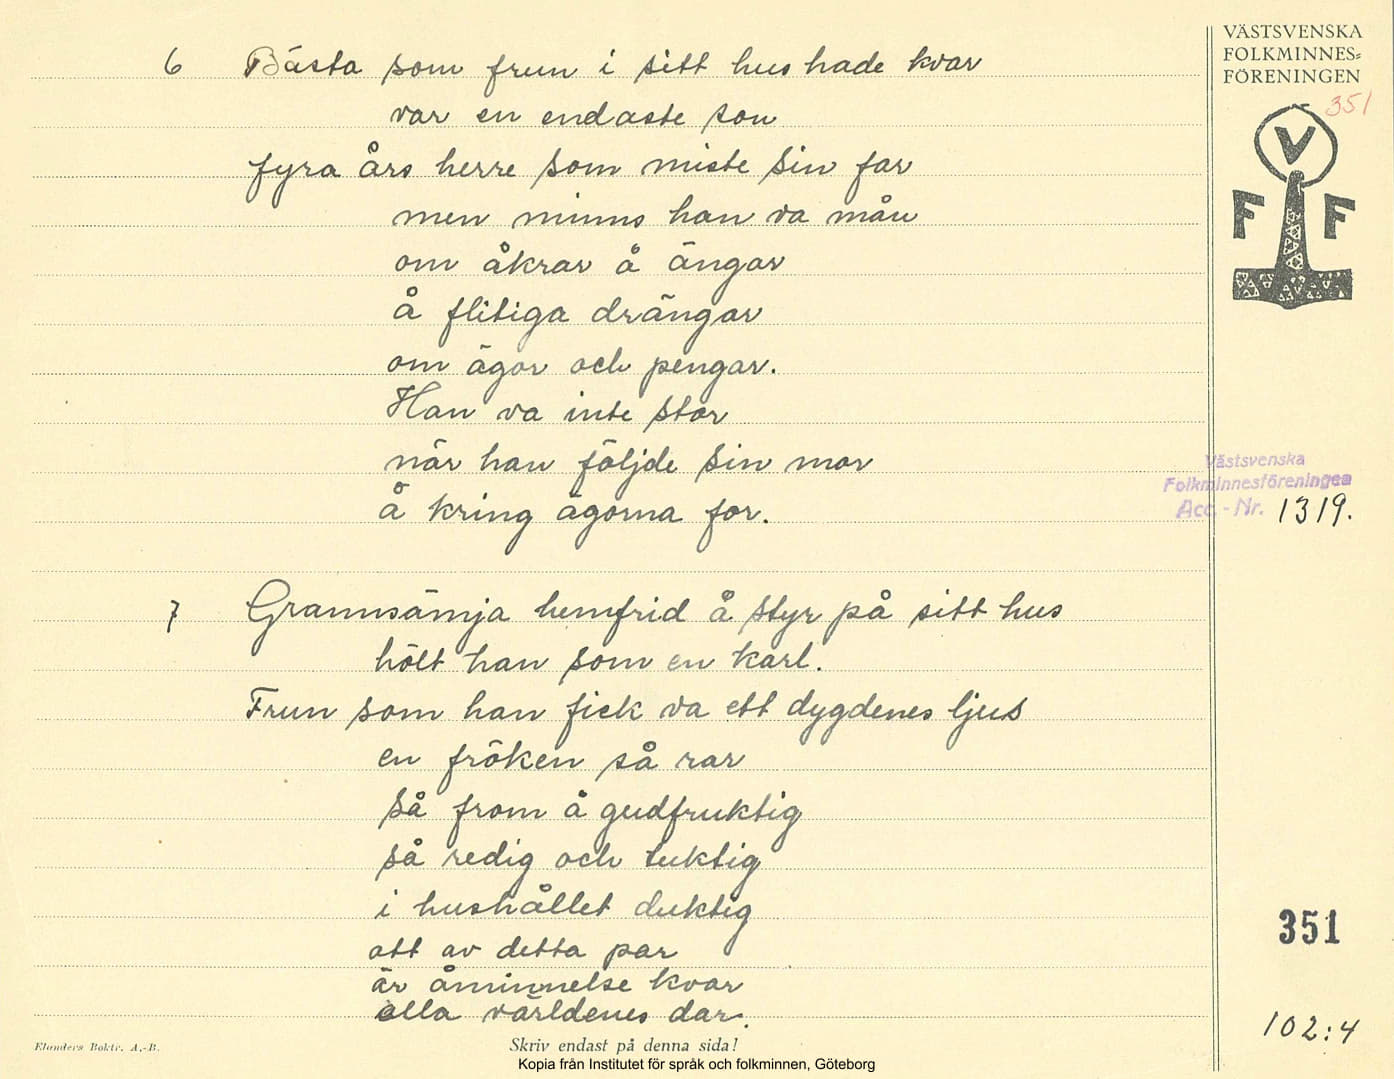 VÄSTSVENSKA
FOLKMINNES=
FÖRENINGEN
351
V
F F
6 Bästa som frun i sitt hus hade kvar
var en endaste son
fyra års herre som miste sin far
men minns han va mån
om åkrar å ängar
å flitiga drängar
om ägor och pengar.
Han va inte stor
när han följde sin mor
å kring ägorna for.
Västsvenska
Folkminnesföreningen
Acc. - Nr. 1319.
7 Grannsämja hemfrid å styr på sitt hus
hölt han som en karl.
Frun som han fick va ett dygdenes ljus
en fröken så rar
så from å gudfruktig
så redig och tuktig
i hushållet duktig
att av detta par
är åminnelse kvar
alla världenes dar.
351
102:4
Elanders Boktr. A.-B.
Skriv endast på denna sida!
Kopia från Institutet för språk och folkminnen, Göteborg